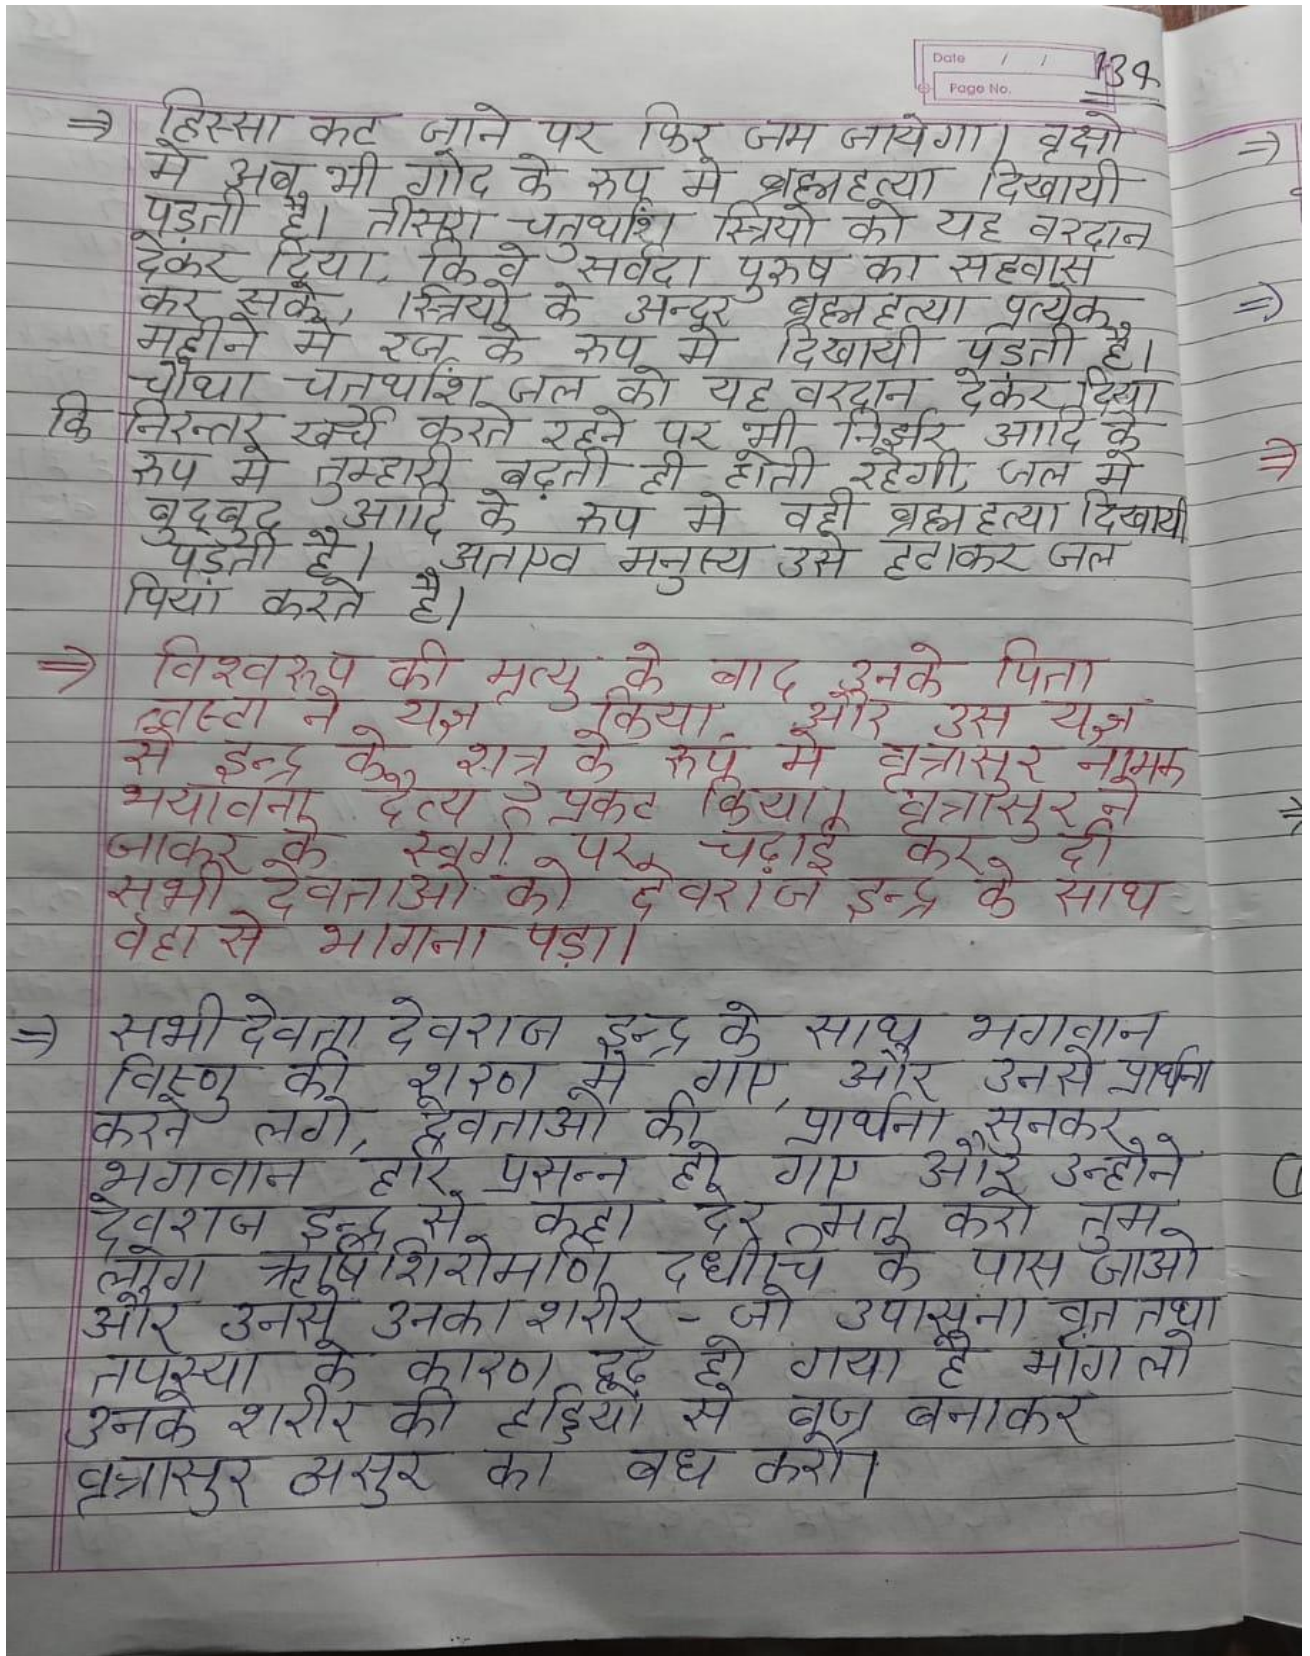 Date / /
Page No.
134
⇒ हिस्सा कट जाने पर फिर जम जायेगा। वृक्षो
मे अब भी गोद के रुप मे ब्रह्महत्या दिखायी
पड़ती है। तीसरा चतुर्थांश स्त्रियो को यह वरदान
देकर दिया, कि वे सर्वदा पुरुष का सहवास
कर सके, स्त्रियो के अन्दर ब्रह्महत्या प्रत्येक
महीने मे रज के रुप मे दिखायी पड़ती है।
चौथा चतथांश जल को यह वरदान देकर दिया
कि निरन्तर खर्च करते रहने पर भी निर्झर आदि के
रुप मे तुम्हारी बढ़ती ही होती रहेगी, जल मे
बुद्बुद आदि के रुप मे वही ब्रह्महत्या दिखायी
पड़ती है। अतएव मनुस्य उसे हटाकर जल
पिया करते है।
⇒ विश्वरुप की मृत्यु के बाद उनके पिता
त्वस्टा ने यज्ञ किया और उस यज्ञ
से इन्द्र के शत्रु के रुप मे वृत्रासुर नामक
भयावना दैत्य प्रकट किया। वृत्रासुर ने
जाकर के स्वर्ग पर चढ़ाई कर दी
सभी देवताओ को देवराज इन्द्र के साथ
वहा से भागना पड़ा।
⇒ सभी देवता देवराज इन्द्र के साथ भगवान
विष्णु की शरण मे गए, और उनसे प्रार्थना
करने लगे, देवताओ की प्रार्थना सुनकर
भगवान हरि प्रसन्न हो गए और उन्होने
देवराज इन्द्र से कहा देर मत करो तुम
लोग ऋषिशिरोमणि दधीचि के पास जाओ
और उनसे उनका शरीर - जो उपासना वृत तथा
तपस्या के कारण दृढ हो गया है माँग लो
उनके शरीर की हड्डियो से बज्र बनाकर
वृत्रासुर असुर का बध करो।